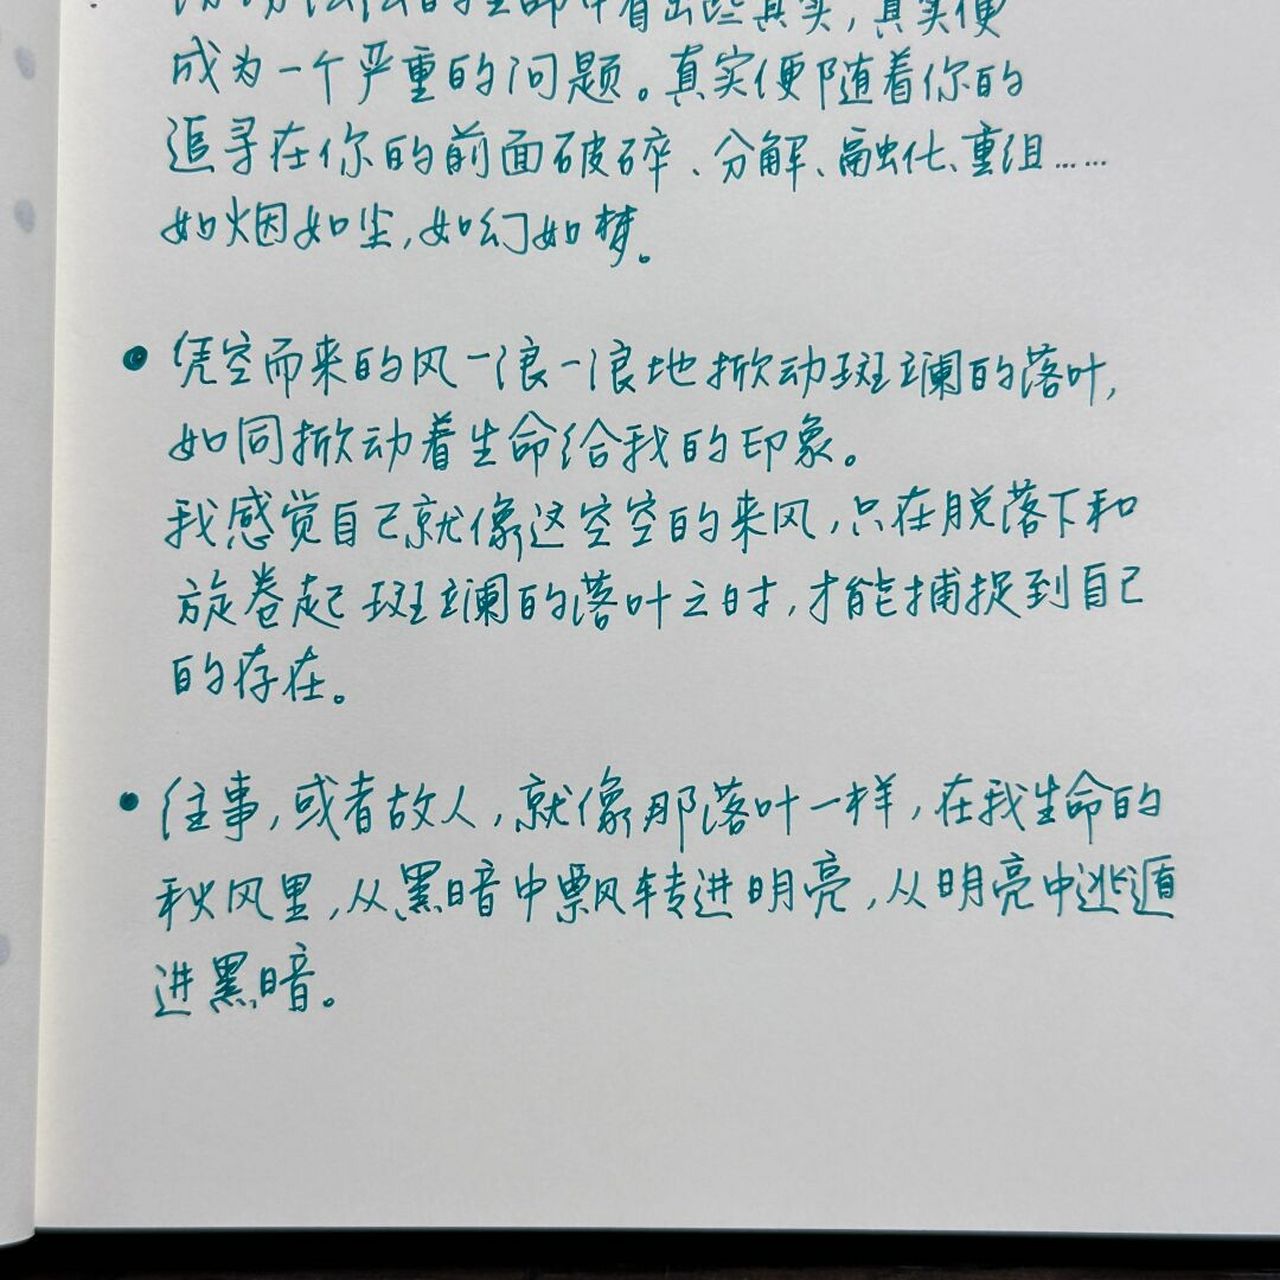 的生命中看出些真实，真实便
成为一个严重的问题。真实便随着你的
追寻在你的前面破碎、分解、融化、重组……
如烟如尘，如幻如梦。
• 凭空而来的风一浪一浪地掀动斑斓的落叶，
如同掀动着生命给我的印象。
我感觉自己就像这空空的来风，只在脱落下和
旋卷起斑斓的落叶之时，才能捕捉到自己
的存在。
• 往事，或者故人，就像那落叶一样，在我生命的
秋风里，从黑暗中飘转进明亮，从明亮中逃遁
进黑暗。